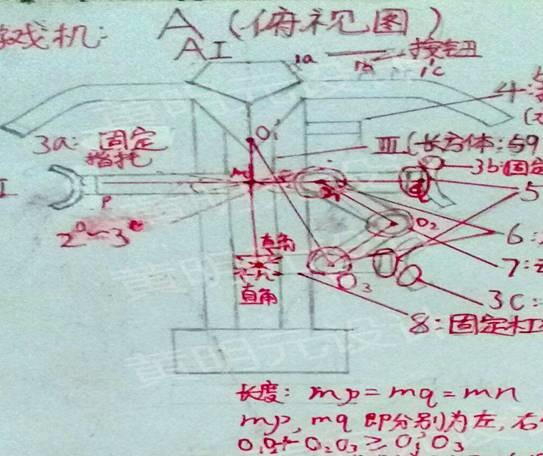 戏机: A (俯视图)
AI
1a 1b 1c 按钮
4:
3a: 固定挡托
O₁'
III (长方体: 与9
3b: 固定
I
P
M
q
5
2°~3°
O₂
6:
7:
直角
n
O₃
3C:
直角
8: 固定杠
长度: mp=mq=mn
mp, mq 即分别为左, 右
O₁O₂+O₂O₃≥O₁'O₃